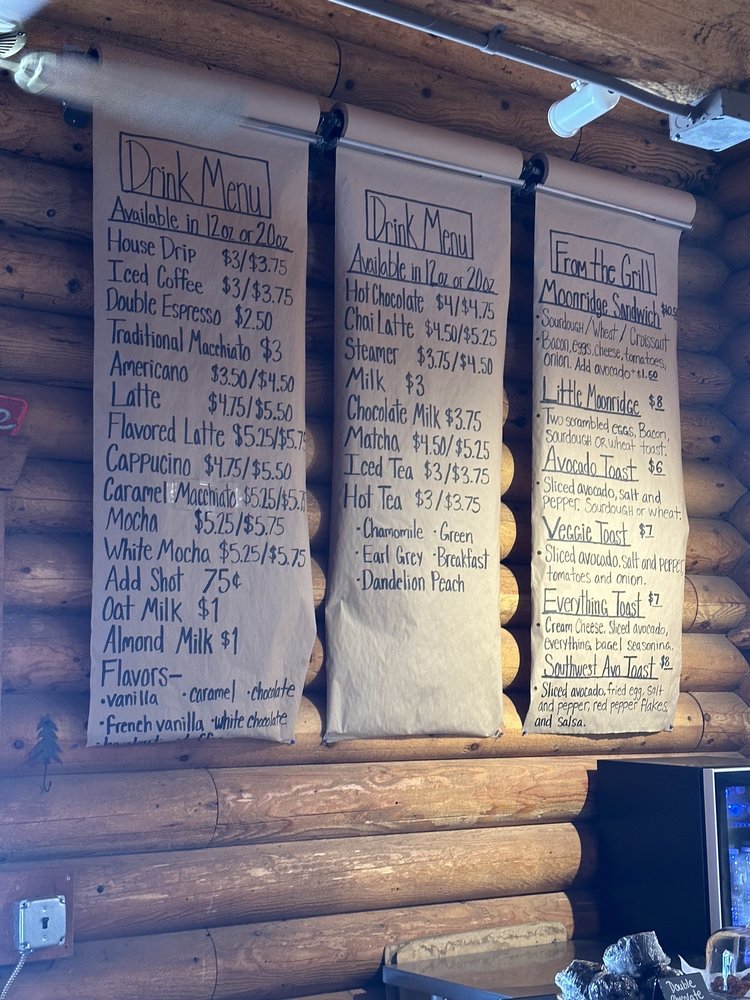 Drink Menu
Available in 12oz or 20oz
House Drip $3/$3.75
Iced Coffee $3/$3.75
Double Espresso $2.50
Traditional Macchiato $3
Americano $3.50/$4.50
Latte $4.75/$5.50
Flavored Latte $5.25/$5.7
Cappucino $4.75/$5.50
Caramel Macchiato $5.25/$5.7
Mocha $5.25/$5.75
White Mocha $5.25/$5.75
Add Shot 75¢
Oat Milk $1
Almond Milk $1
Flavors-
•vanilla •caramel •chocolate
•french vanilla •white chocolate
Drink Menu
Available in 12oz or 20oz
Hot Chocolate $4/$4.75
Chai Latte $4.50/$5.25
Steamer $3.75/$4.50
Milk $3
Chocolate Milk $3.75
Matcha $4.50/$5.25
Iced Tea $3/$3.75
Hot Tea $3/$3.75
•Chamomile •Green
•Earl Grey •Breakfast
•Dandelion Peach
From the Grill
Moonridge Sandwich
•Sourdough/Wheat/Croissant
•Bacon, eggs, cheese, tomatoes,
onion. Add avocado +$1.50
Little Moonridge $8
•Two scrambled eggs, Bacon,
Sourdough OR wheat toast.
Avocado Toast $6
•Sliced avocado, salt and
pepper, Sourdough or wheat.
Veggie Toast $7
•Sliced avocado, salt and pepper
tomatoes and onion.
Everything Toast $7
Cream Cheese, Sliced avocado,
everything bagel seasoning.
Southwest Avo Toast $8
•Sliced avocado, fried egg, salt
and pepper, red pepper flakes
and salsa.
Double
Chocolate